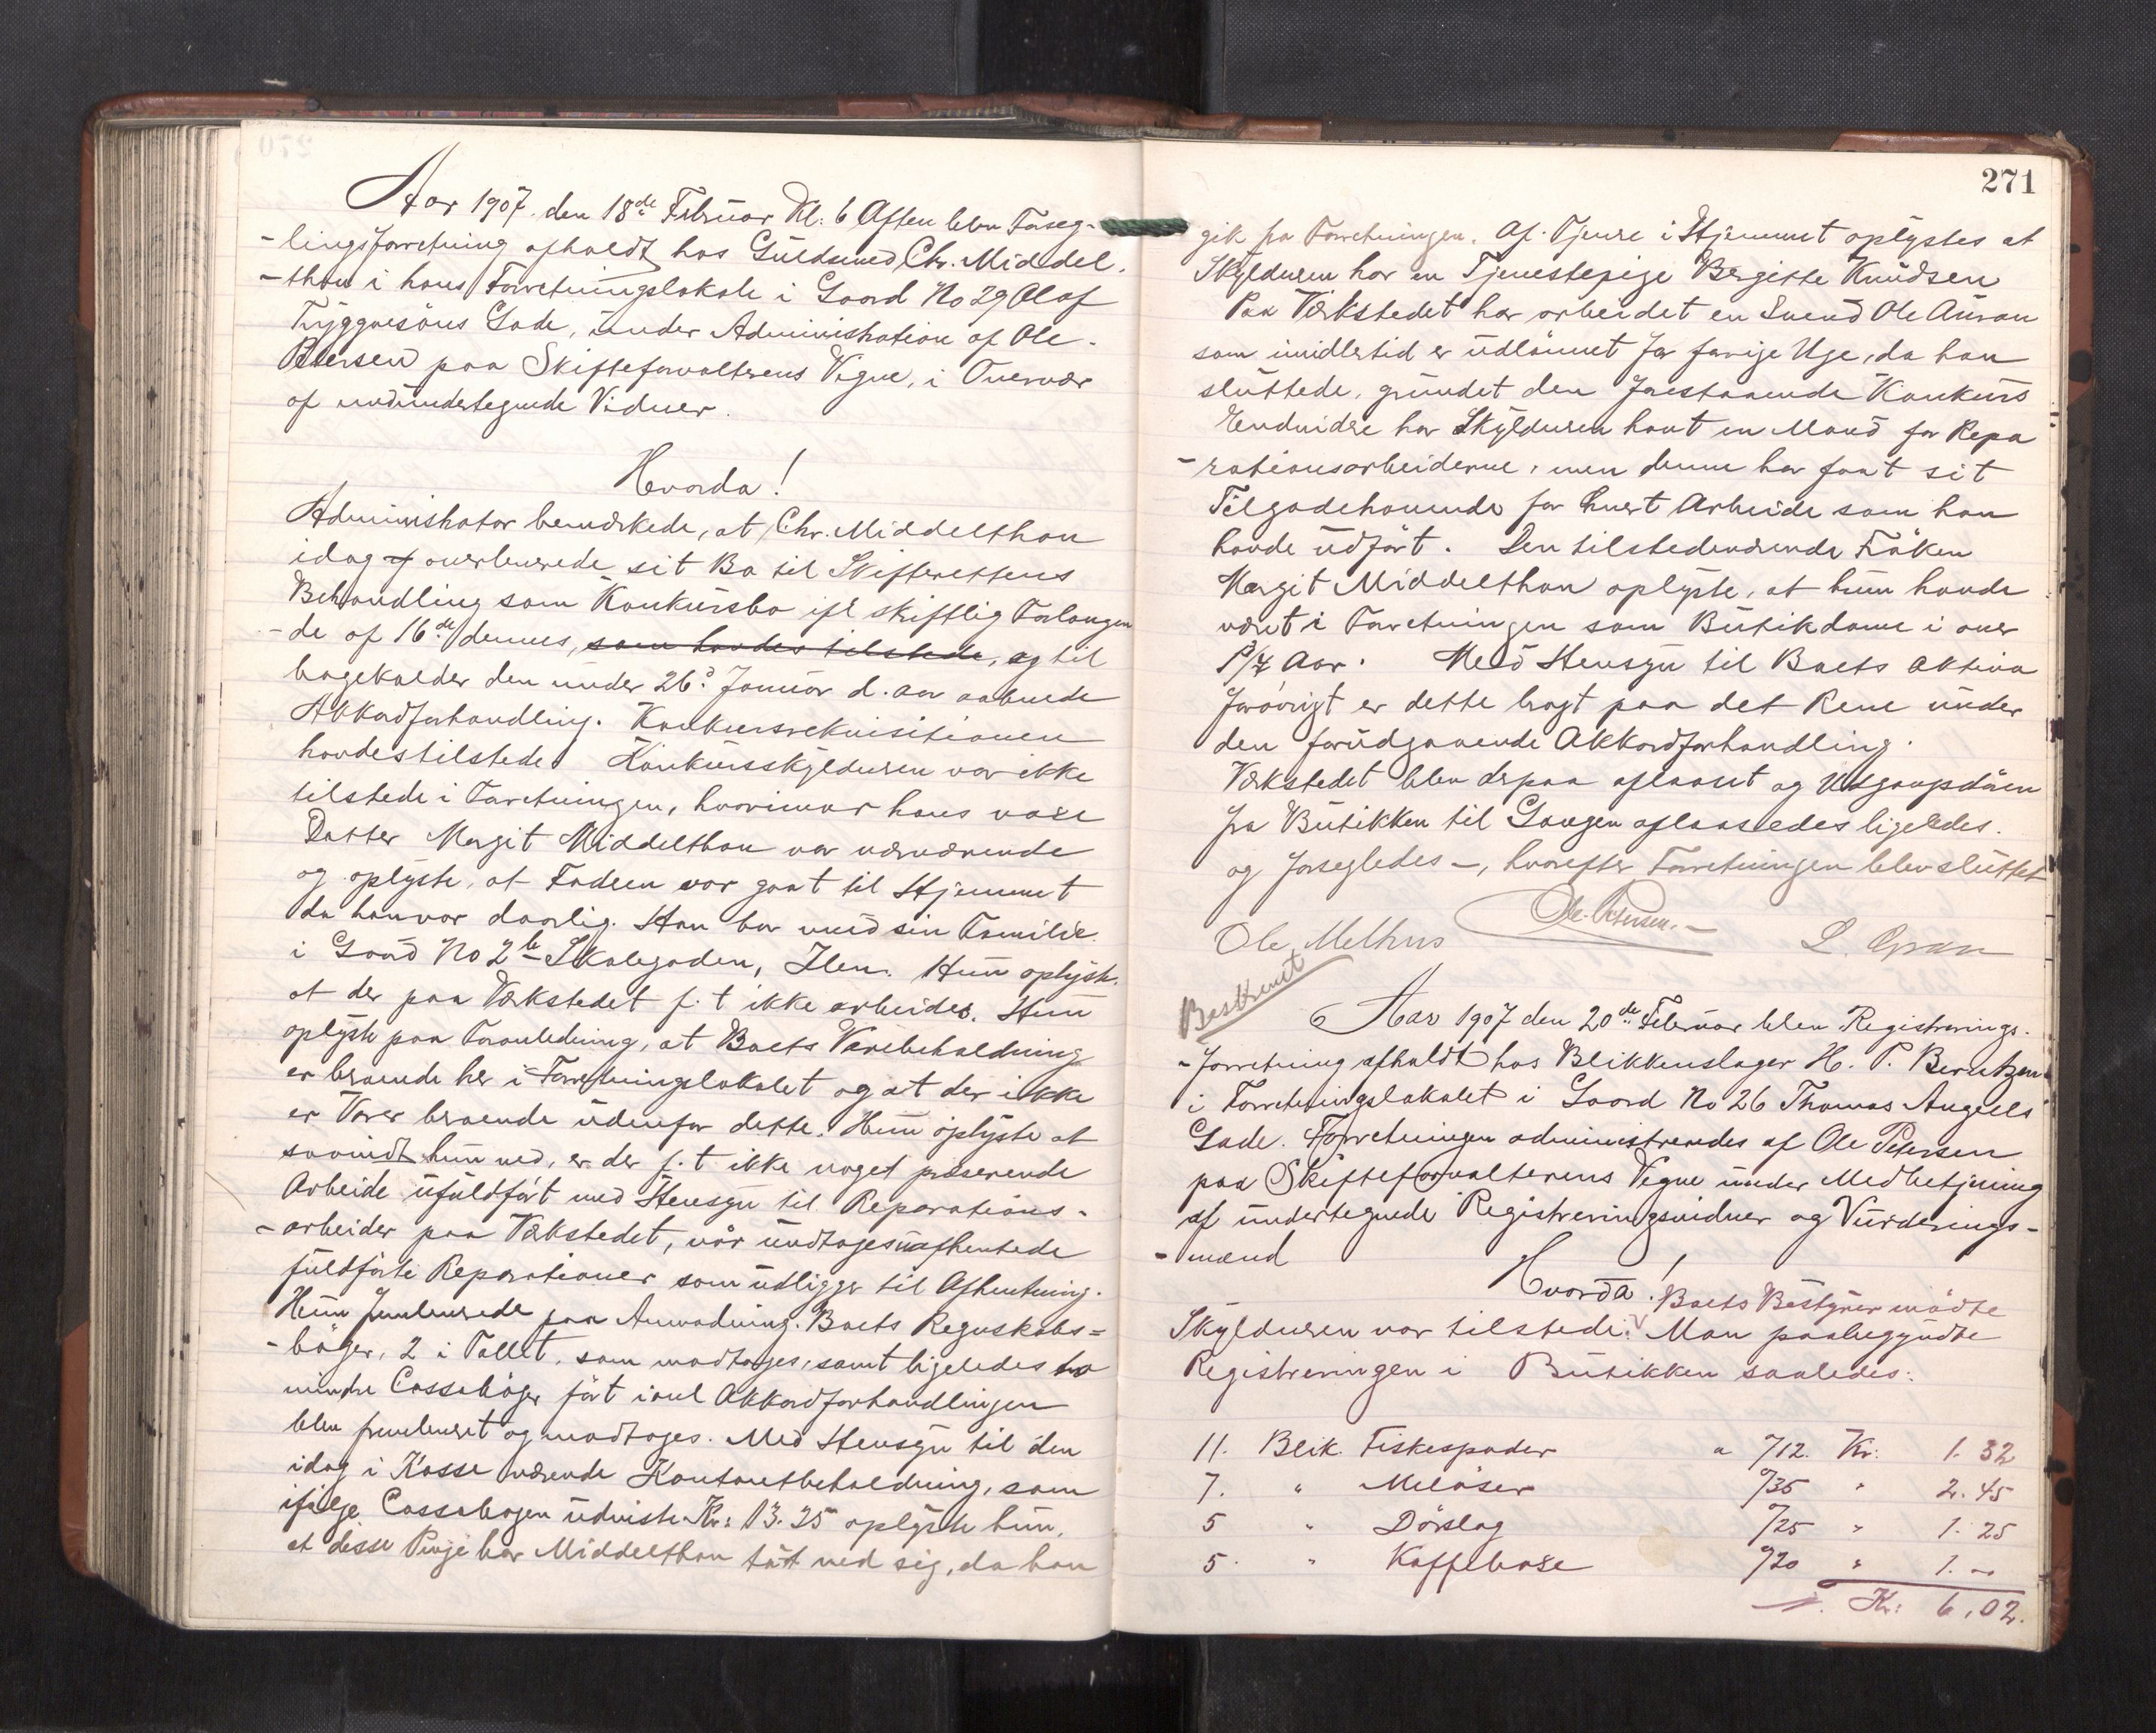 Aar 1907 den 18de Februar Kl: 6 Aften blev Forseg-
-lingsforretning afholdt hos Guldsmed Chr. Middel-
-thon i hans Forretningslokale i Gaard No 29 Olaf
Tryggvesöns Gade, under Administration af Ole
Petersen paa Skifteforvalterens Vegne, i Overvær
af medundertegnede Vidner.
Hvorda!
Administrator bemærkede, at Chr. Middelthon
idag overleverede sit Bo til Skifterettens
Behandling som Konkursbo ifl skriftlig Forlangen
-de af 16de dennes, som havdes tilstede, og til
bagekalder den under 26d Januar d. aar aabnede
Akkordforhandling. Konkursrekvisitionen
havdes tilstede. Konkursskyldneren var ikke
tilstede i Forretningen, hvorimod hans voxe
Datter Margit Middelthon var nærværende
og oplyste, at Faderen var gaat til Hjemmet
da han var daarlig. Han bor med sin Familie
i Gaard No 2b Skolegaden, Ilen. Hun oplyste
at der paa Værkstedet f. t ikke arbeides. Hun
oplyste paa Foranledning, at Boets Varebeholdning
er beroende her i Forretningslokalet og at der ikke
er Varer beroende udenfor dette. Hun oplyste at
saavidt hun ved, er der f. t ikke noget presserende
Arbeide ufuldfört med Hensyn til Reparations-
-arbeider paa Værkstedet, når undtages uafhentede
fuldförte Reparationer som udligger til Afhentning.
Hun fremleverede paa Anmodning Boets Regnskabs=
-böger, 2 i Tallet, som modtoges, samt ligeledes to
mindre Cassaböger fört i Akkordforhandlingen
blev fremleveret og modtoges. Med Hensyn til den
idag i Kasse værende Kontantbeholdning, som
ifölge Cassabogen udviste Kr: 13.25 oplyste hun,
at disse Penge har Middelthon tat med sig, da han
271
gik fra Forretningen. Af Tjenere i Hjemmet oplystes at
Skyldneren har en Tjenestepige Bergitte Knudsen
Paa Værkstedet har arbeidet en Svend Ole Auran
som imidlertid er udlönnet for forrige Uge, da han
sluttede, grundet den forestaaende Konkurs
Endvidere har Skyldneren havt en Mand for Repa
-rationsarbeiderne, men denne har faat sit
Tilgodehavende for hvert Arbeide som han
havde udfört. Den tilstedeværende Fröken
Margit Middelthon oplyste, at hun havde
været i Forretningen som Butikdame i over
Aar. Med Hensyn til Boets Aktiva
forövrigt er dette bragt paa det Rene under
den forudgaaende Akkordforhandling.
Værkstedet blev derpaa aflaaset og Udgangsdören
fra Butikken til Gangen aflaasedes ligeledes.
og forsegledes -, hvorefter Forretningen blev sluttet
Ole Petersen.-
Ole Melhus
L. Gran
Beskrevet
Aar 1907 den 20de Februar blev Registrerings-
-forretning afholdt hos Blikkenslager H. P. Berntzen
i Forretningslokalet i Gaard No 26 Thomas Angells
Gade. Forretningen administreredes af Ole Petersen
paa Skifteforvalterens Vegne under Medbetjening
af undertegnede Registreringsvidner og Vurderings-
-mænd
Hvorda! Boets Bestyrer mödte
Skyldneren var tilstede. Man paabegyndte
Registreringen i Butikken saaledes:
11. Blik Fiskespader a "/12. Kr: 1. 32
7. " Meløser "/35 " 2. 45
5 " Dörslag "/25 " 1. 25
5. " Kaffebøxe "/20 " 1. -
Kr: 6,02.